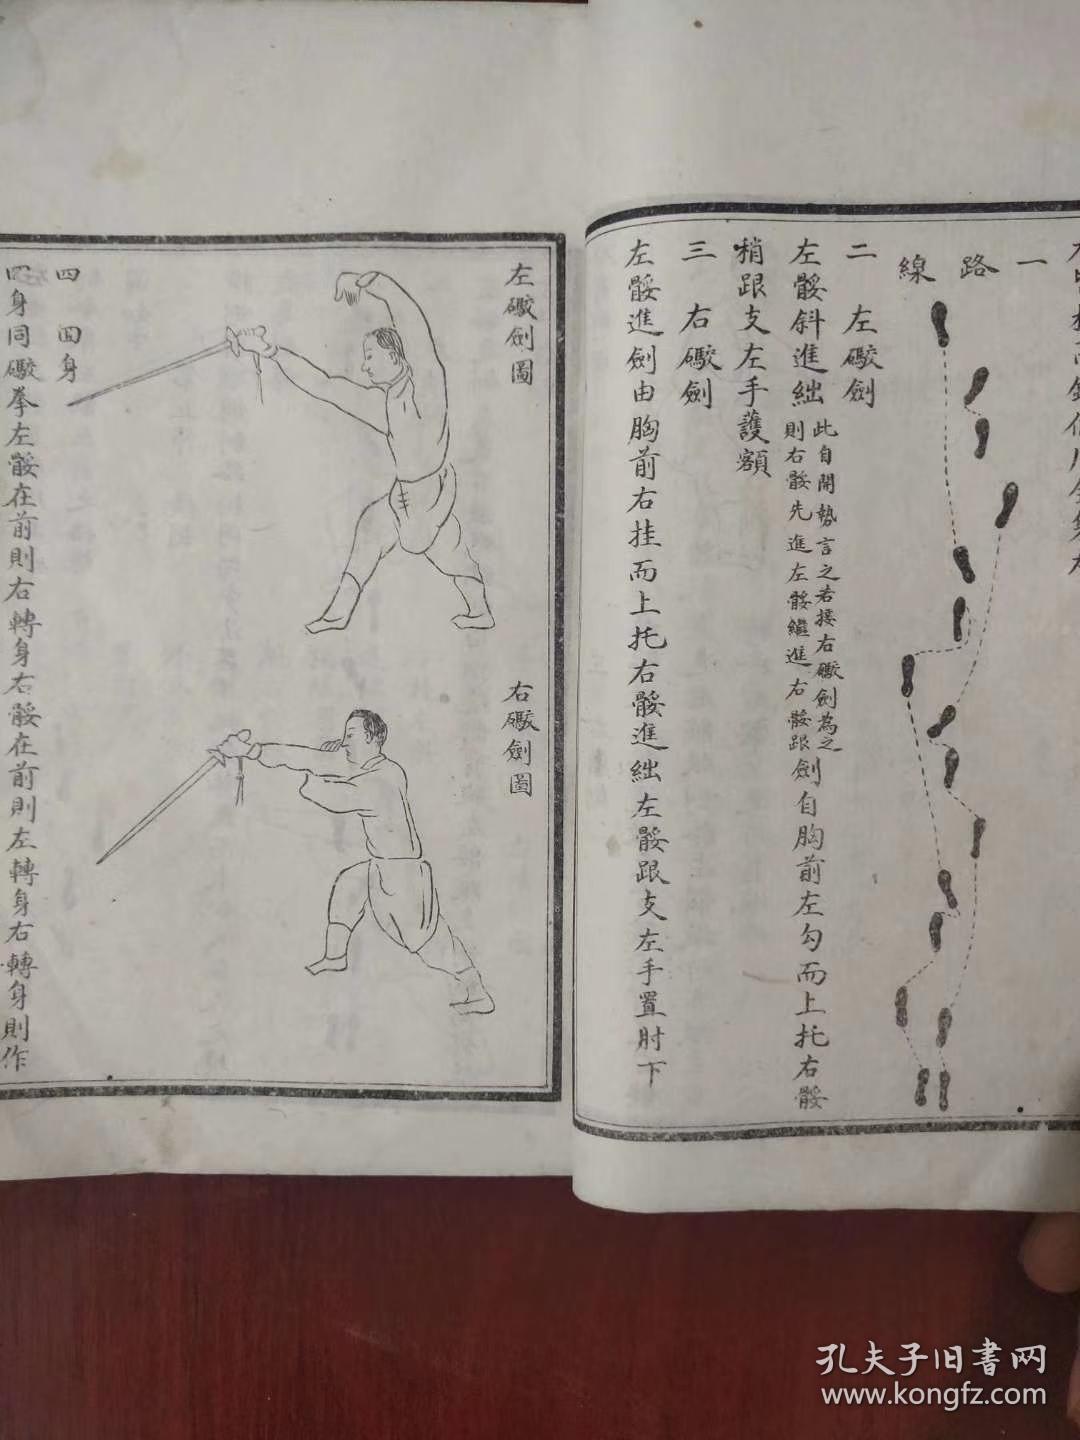 一 路 線
二 左礮劍
左骽斜進絀 此自開勢言之若接右礮劍為之則右骽先進左骽繼進右骽跟 劍自胸前左勾而上托右骽
稍跟支左手護額
三 右礮劍
左骽進劍由胸前右挂而上托右骽進絀左骽跟支左手置肘下
左礮劍圖
右礮劍圖
四 囬身
囬身同礮拳左骽在前則右轉身右骽在前則左轉身右轉身則作
孔夫子旧書网
www.kongfz.com